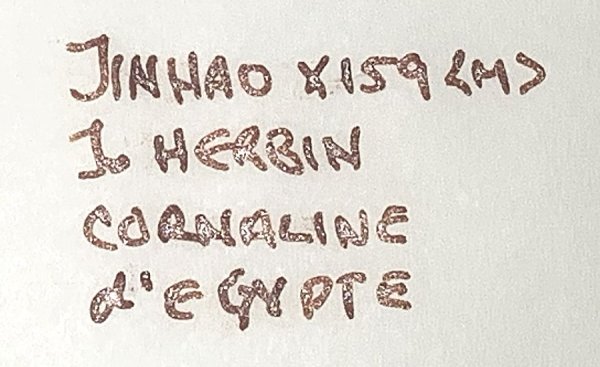 JINHAO X159 <M>
J. HERBIN
CORNALINE
d'EGYPTE